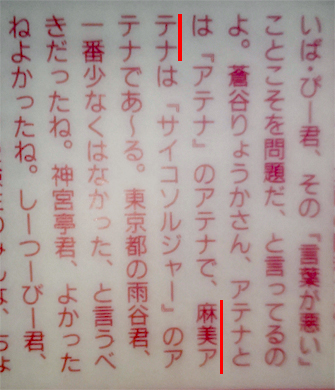 いぱぴー君、その『言葉が悪い』
ことこそを問題だ、と言ってるの
よ。蒼谷りょうかさん、アテナと
は『アテナ』のアテナで、麻美ア
テナは『サイコソルジャー』のア
テナであ〜る。東京都の雨谷君、
一番少なくはなかった、と言うべ
きだったね。神宮亭君、よかった
ねよかったね。しーつーぴー君、